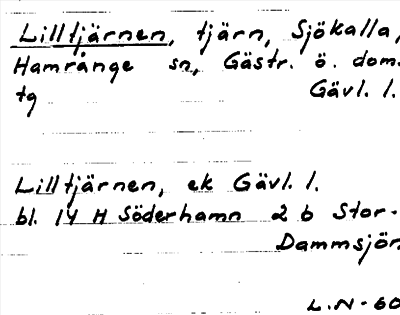 Lilltjärnen, tjärn, Sjökalla,
Hamrånge sn, Gästr. ö. dom.
tg Gävl. l.
Lilltjärnen, ek Gävl. l.
bl. 14 H Söderhamn 2 b Stor-
Dammsjön
L.N-60